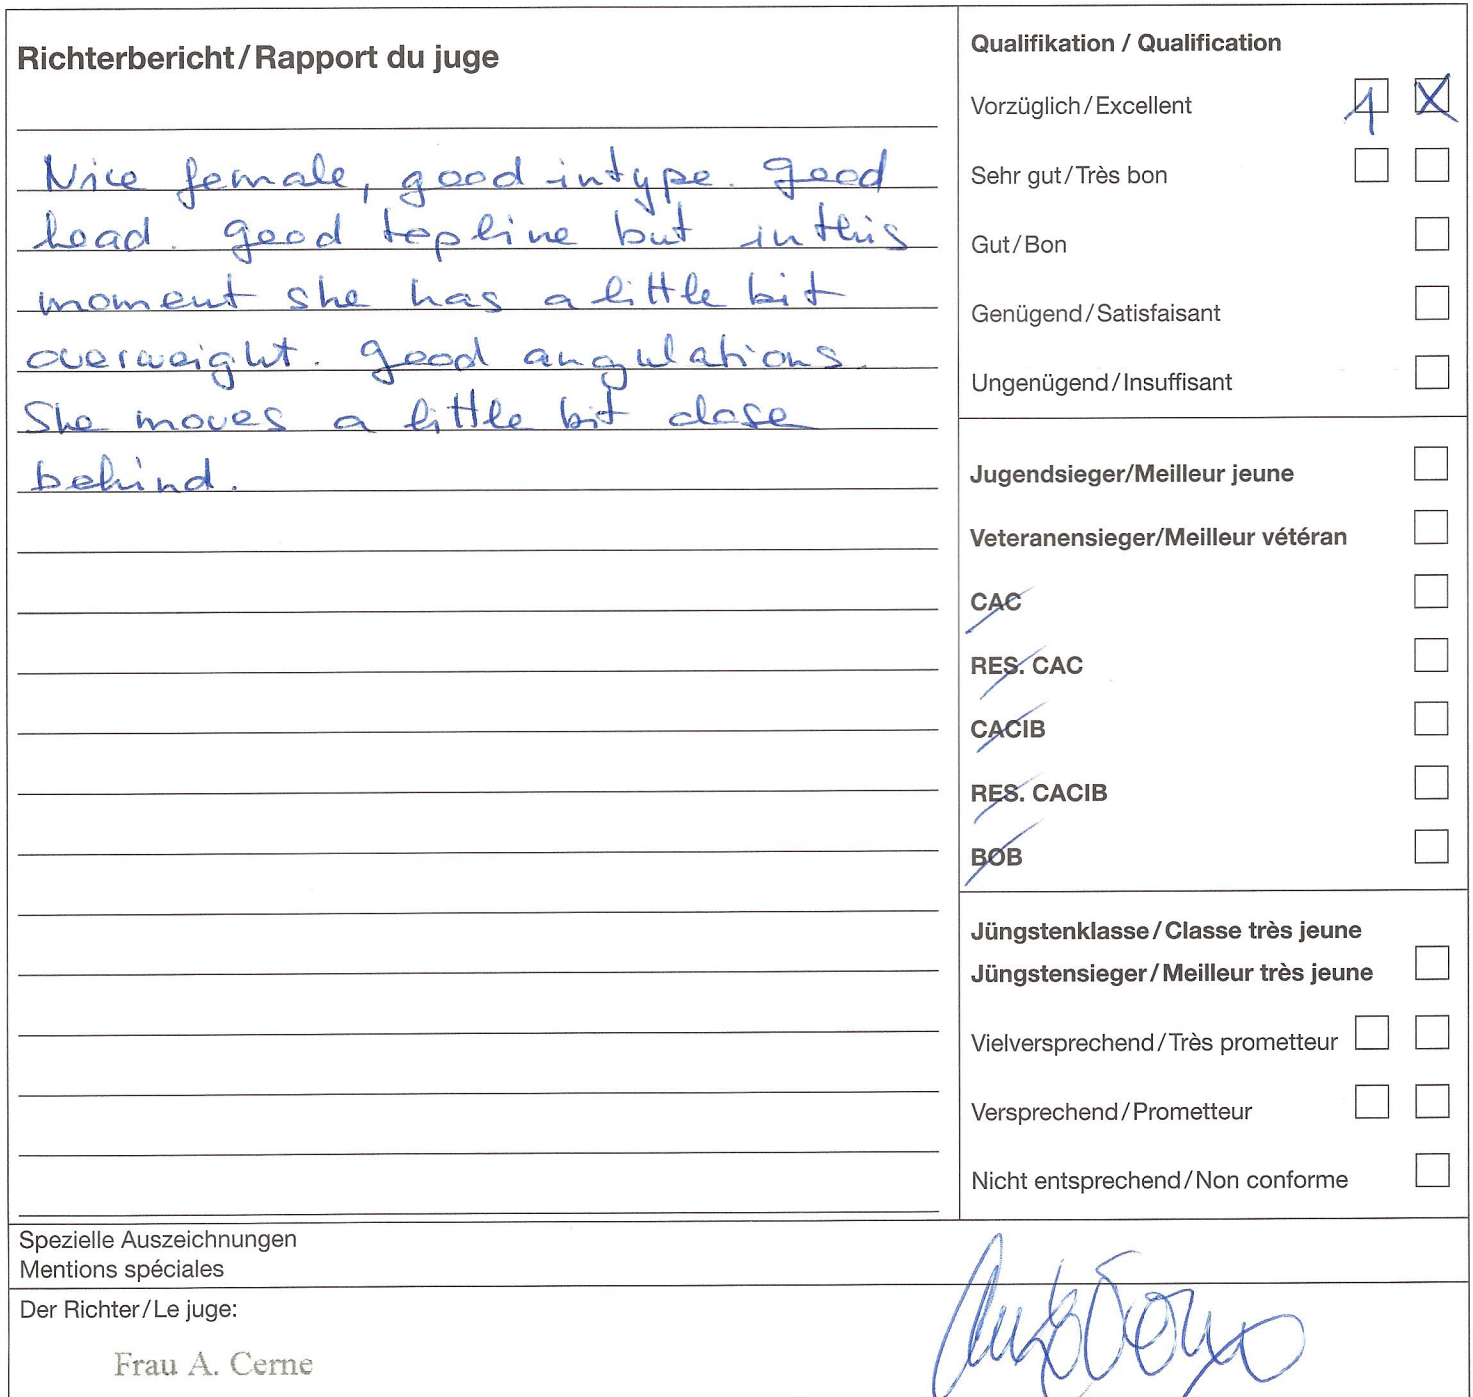 Richterbericht/Rapport du juge
Nice female, good in type. Good
head. Good topline but in this
moment she has a little bit
overweight. Good angulations.
She moves a little bit close
behind.
Qualifikation / Qualification
Vorzüglich/Excellent 1 X
Sehr gut/Très bon
Gut/Bon
Genügend/Satisfaisant
Ungenügend/Insuffisant
Jugendsieger/Meilleur jeune
Veteranensieger/Meilleur vétéran
CAC
RES. CAC
CACIB
RES. CACIB
BOB
Jüngstenklasse/Classe très jeune
Jüngstensieger/Meilleur très jeune
Vielversprechend/Très prometteur
Versprechend/Prometteur
Nicht entsprechend/Non conforme
Spezielle Auszeichnungen
Mentions spéciales
Der Richter/Le juge:
Frau A. Cerne